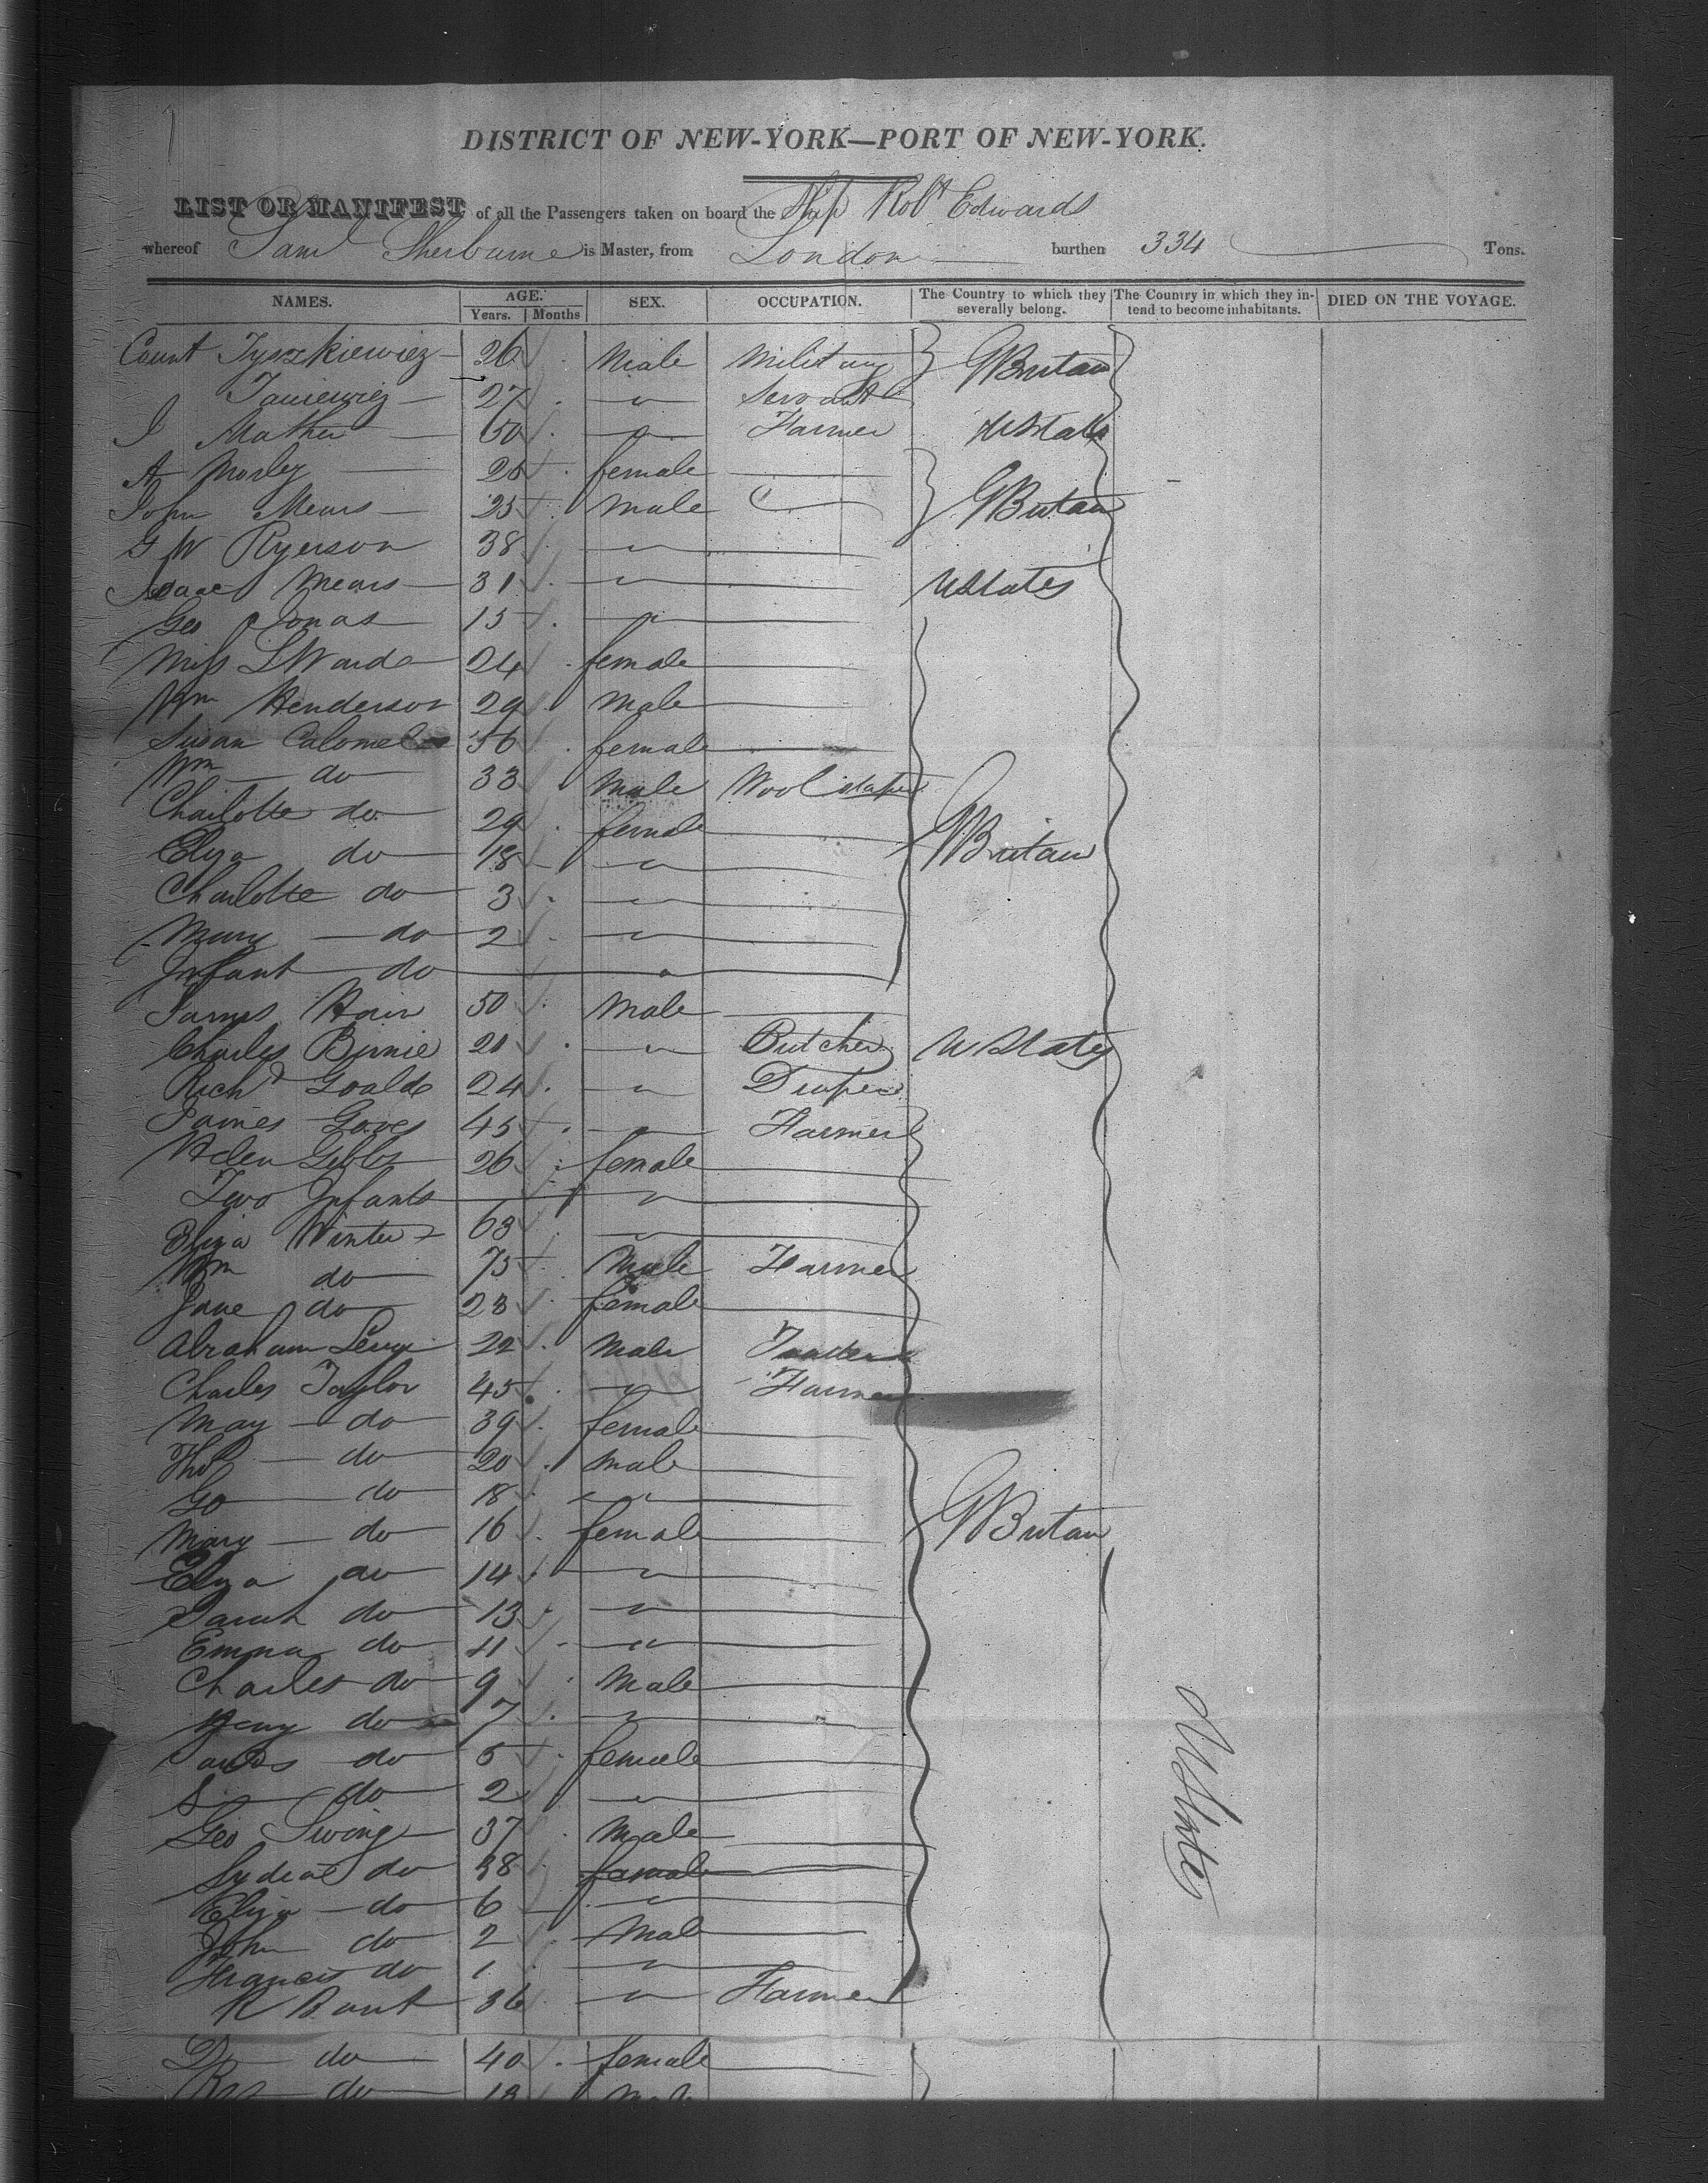 DISTRICT OF NEW-YORK—PORT OF NEW-YORK.
LIST OR MANIFEST of all the Passengers taken on board the Ship Robt Edwards
whereof Saml Sherburne is Master, from London burthen 334 Tons.
NAMES. AGE. Years. Months SEX. OCCUPATION. The Country to which they severally belong. The Country in which they intend to become inhabitants. DIED ON THE VOYAGE.
Count Tyszkiewiez 26 Male Military GBritain
27 Servant
J Mather 50 Farmer UStates
A Morley female
John Mears 25 male GBritain
G W Ryerson 38
Isaac Mears 31 UStates
Geo Jonas 15
Miss L Warde 24 female
Wm Henderson 29 Male
Susan 56 female
Wm do 33 Male Wool stapler
Charlotte do 29 female GBritain
Eliza do 18
Charlotte do 3
Mary do 2
Infant do
James Hair 50 Male
Charles Birnie 21 Butcher UStates
Richd Goalde 24 Draper
James Goves 45 Farmer
Helen Gibbs 26 female
Two Infants
Eliza Winter 63
Wm do 75 Male Farmer
Jane do 23 female
Abraham Levy 22 Male Trader
Charles Taylor 45 Farmer
May do 39 female
Thos do 20 Male
Go do 18
Mary do 16 female GBritain
Eliza do 14
Sarah do 13
Emma do 11
Charles do 9 Male
Heny do 7
do 5 female
S do 2
Geo Swing 37 Male
do 38 female
Eliza do 6
John do 2 Male
Francis do 1
R Bant 36 Farmer
do 40 female
do 18 Male
UStates